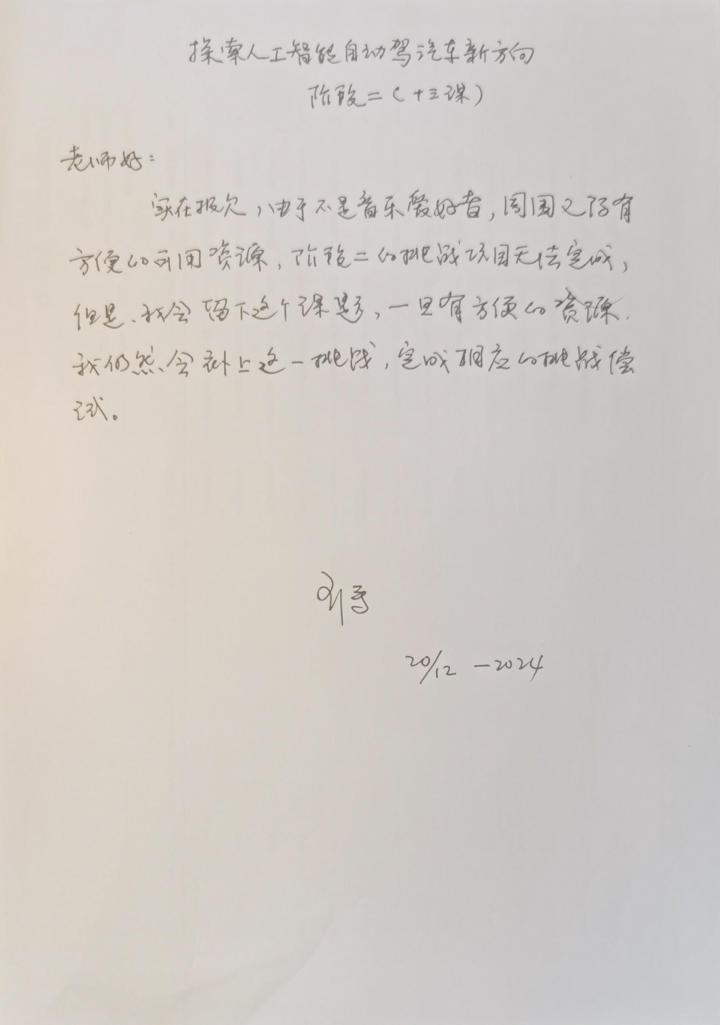 探索人工智能自动驾汽车新方向
阶段二（十三课）
老师好：
实在报欠，由于不是音乐爱好者，周围又没有
方便的可用资源，阶段二的挑战项目无法完成，
但是、我会留下这个课题，一旦有方便的资源.
我仍然会补上这一挑战，完成相应的挑战偿
试。
20/12 -2024